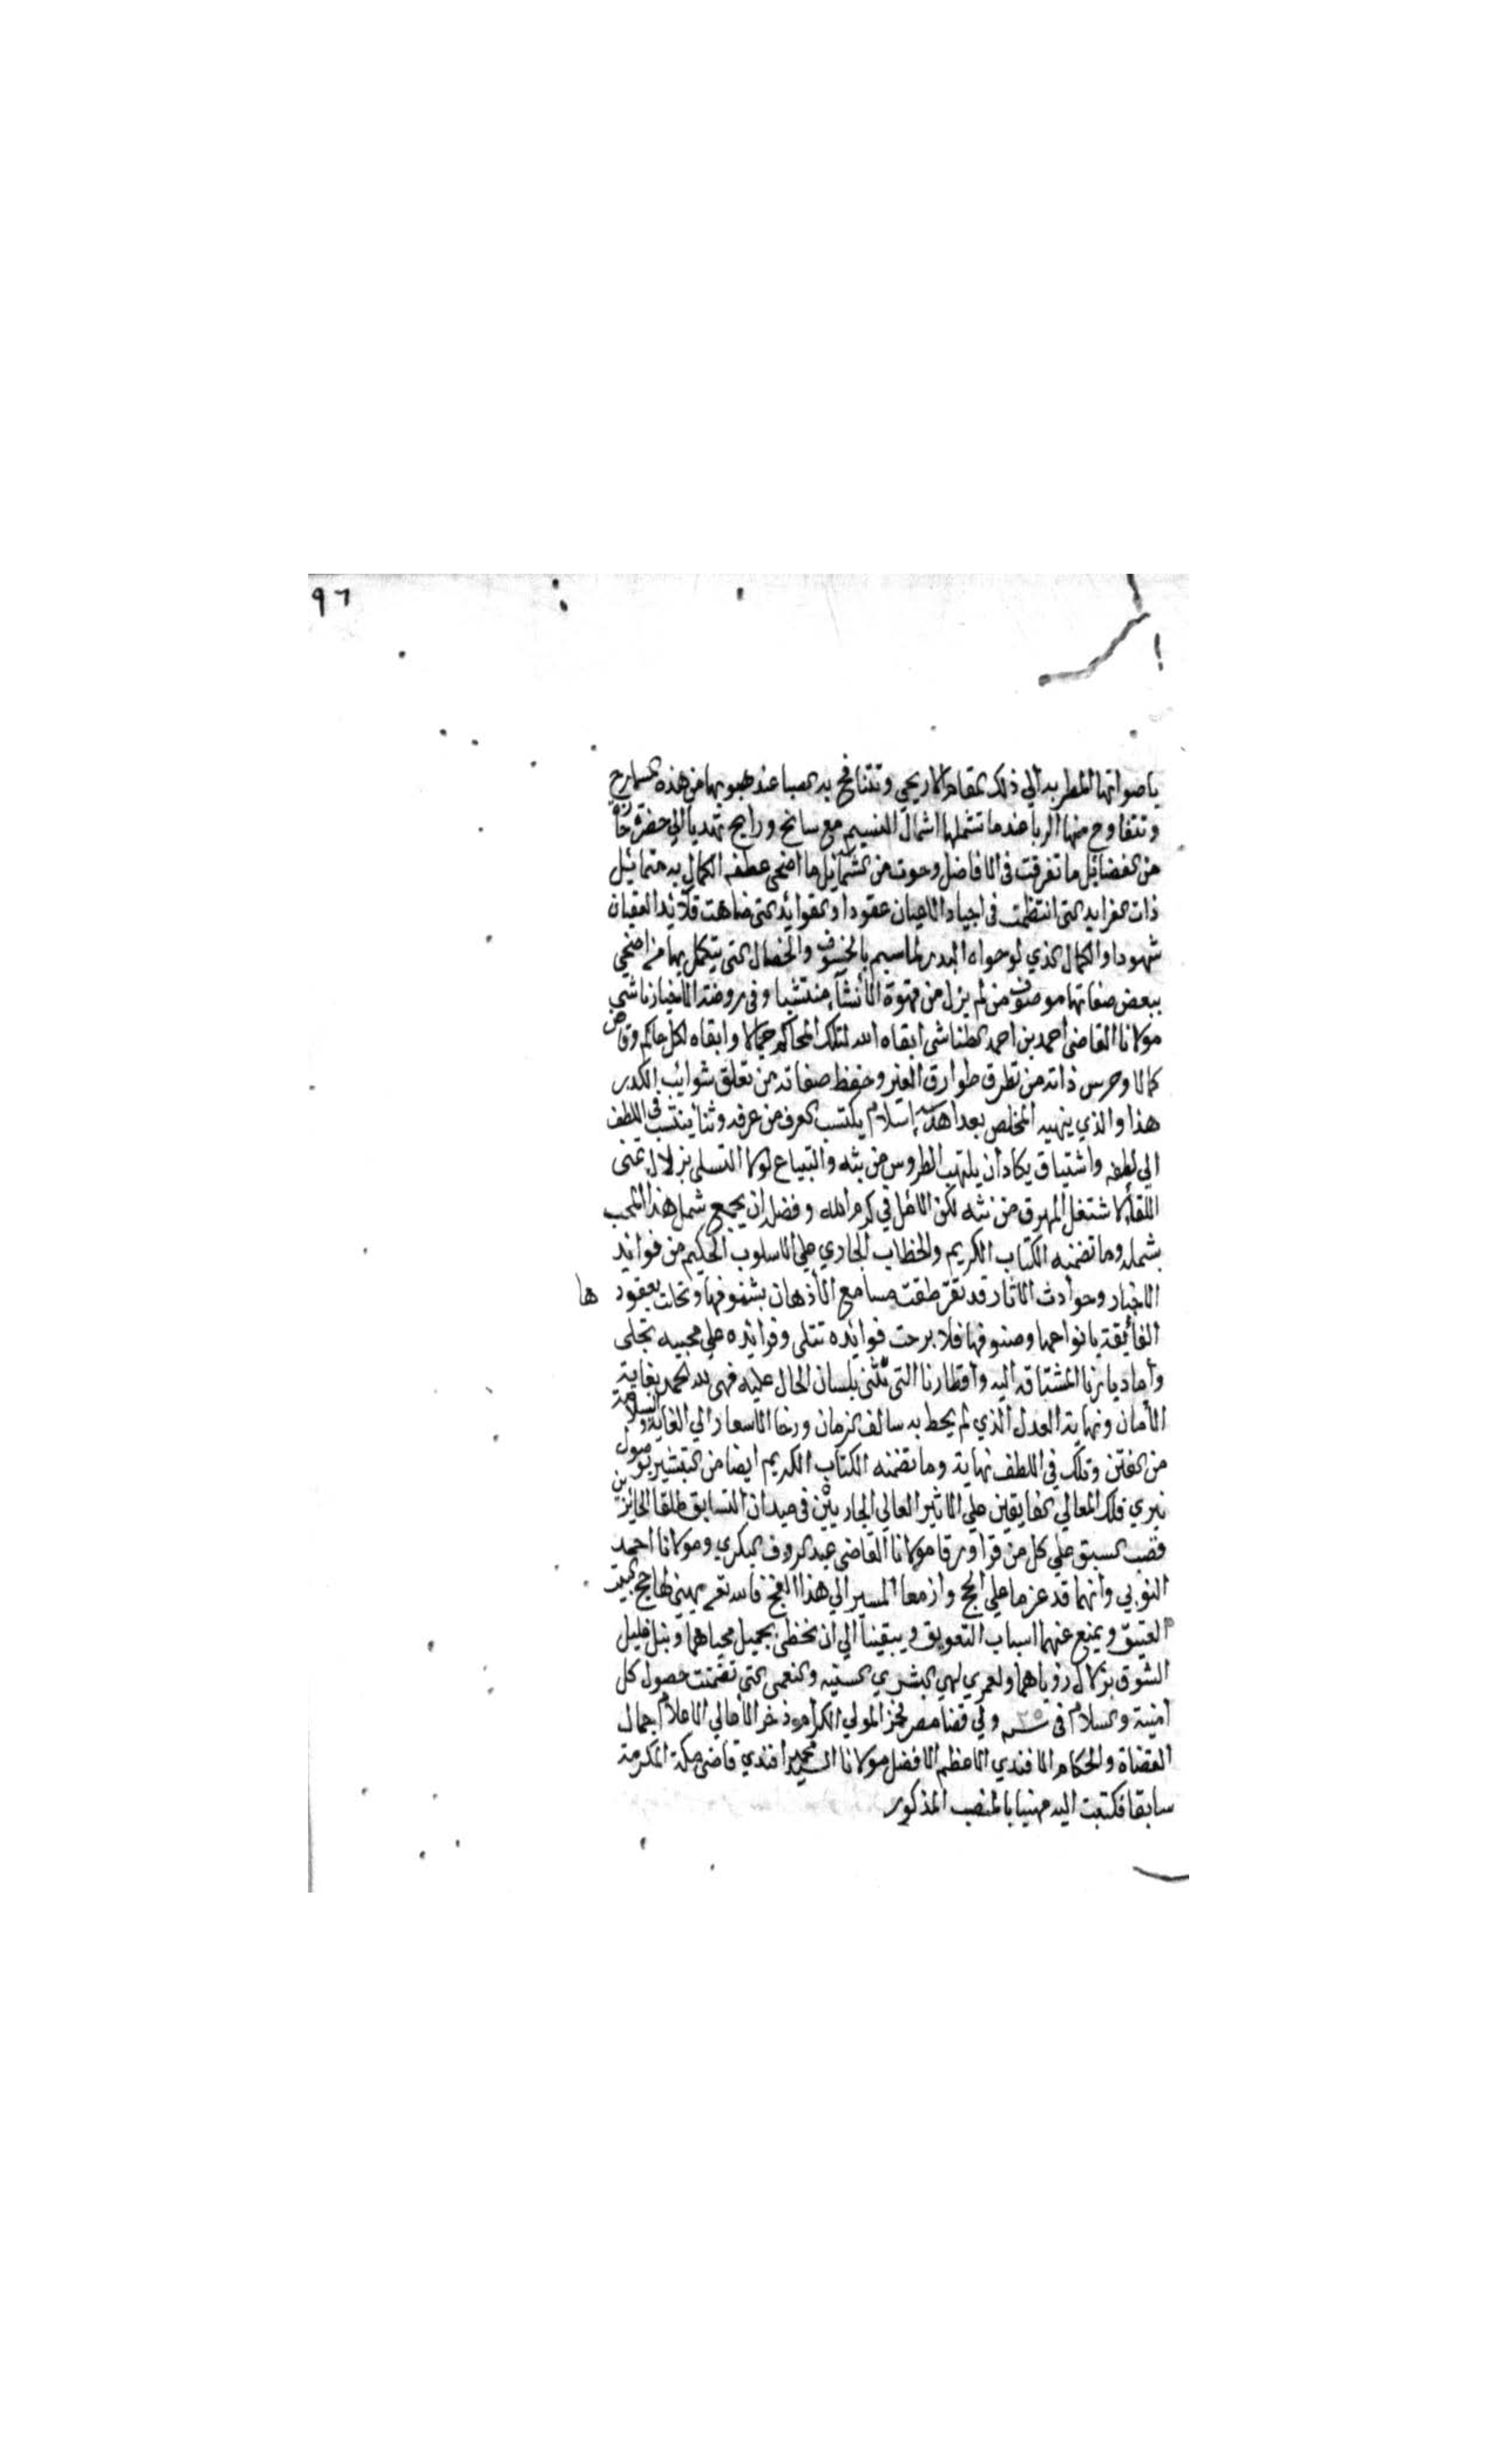 ٩٦
باصواتها المطربه الي ذلك المقام الاريحي وتتنافح به الصبا عند هبوبها من هذه المسارح
وتتفاوح منها الربا عندما تشملها اشمال النسيم مع سانح ورايح تهديا الي حضرة حازة
من الفضايل ما تفرقت في الافاضل وحوت من الشمايل ما اضحي عطف الكمال به متمايل
ذات الفرايد التي انتظمت في اجياد الاعيان عقودا والفوائد التي ضاهت قلائد العقيان
شهودا والكمال الذي لو حواه البدر لما سيم بالخسوف والخصال التي يتكمل بها من اضحي
ببعض صفاتها موصوف من لم يزل من قهوة الأنشآء منتشيا وفي روضة الامتياز ناشي
مولانا القاضي احمد بن احمد الطناشي ابقاه الله لتلك المحاكم جمالا وابقاه لكل حاكم وقاض
كمالا وحرس ذاته من تطرق طوارق الغير وحفظ صفاته من تعلق شوائب الكدر
هذا والذي ينهيه المخلص بعد اهدآء سلام يكتسب العرف من عرفه وثنا ينتسب في اللطف
الي لطفه واشتياق يكاد أن يلتهب الطروس من بثه والتياع لولا التسلي بزلال تمني
اللقآء لاشتغل المهرق من نثه لكن الامل في كرم الله وفضله ان يجمع شمل هذا المحب
بشمله وما تضمنه الكتاب الكريم والخطاب الجاري علي الاسلوب الحكيم من فوائد
الاخبار وحوادث الاثار قد تقرطقت مسامع الأذهان بشنوفها وتحلت بعقود ها
الفائقة بانواعها وصنوفها فلا برحت فوائده تتلي وفرائده علي محبيه تجلي
وأما ديارنا المشتاقه اليه واقطارنا التي تثني بلسان الحال عليه فهي لله الحمد بغاية
الأمان ونهاية العدل الذي لم يحط به سالف الزمان ورخا الاسعار الي الغاية والسلامة
من الفتن وتلك في اللطف نهاية وما تضمنه الكتاب الكريم ايضا من التبشير بوصول
نيري فلك المعالي الفايقين علي الاثير العالي الجاريين في ميدان التسابق طلقا الحائزين
قصب السبق علي كل من قرا ورقا مولانا القاضي عبد الروف البكري ومولانا احمد
النوبي وانهما قد عزما علي الحج وازمعا المسير الي هذا الفج فالله تعم يهيئ لهما حج البيت
العتيق ويمنع عنهما اسباب التعويق ويبقينا الي ان نحظي بجميل محياهما ونبل غليل
الشوق بزلال رؤياهما ولعمري لهي البشري السنيه والنعمي التي تضمنت حصول كل
امنية والسلام في سنة ٣٥ ولي قضا مصر فخر الموالي الكرام وذخر الأهالي الاعلام جمال
القضاة والحكام الافندي الاعظم الافضل مولانا السيد محمد افندي قاضي مكة المكرمة
سابقا فكتبت اليه مهنيا بالمنصب المذكور